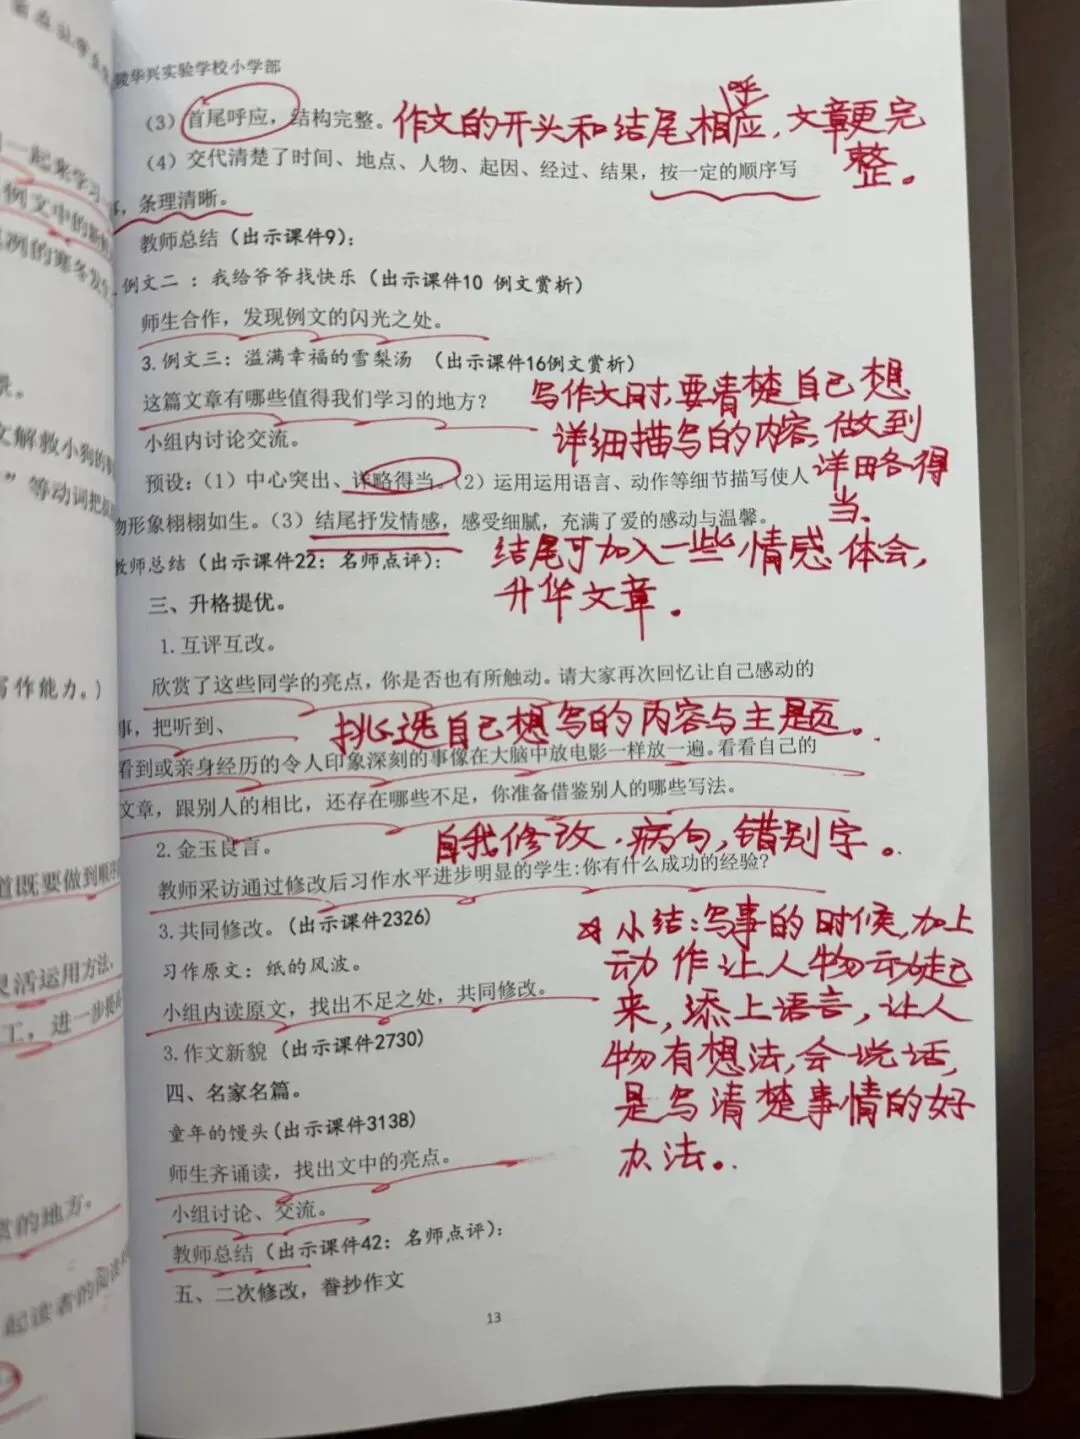 陵华兴实验学校小学部
（3）首尾呼应，结构完整。
作文的开头和结尾相呼应，文章更完整。
（4）交代清楚了时间、地点、人物、起因、经过、结果，按一定的顺序写
事，条理清晰。
教师总结（出示课件9）：
例文二 ：我给爷爷找快乐（出示课件10 例文赏析）
师生合作，发现例文的闪光之处。
3.例文三：溢满幸福的雪梨汤 （出示课件16例文赏析）
这篇文章有哪些值得我们学习的地方？
写作文时，要清楚自己想
详细描写的内容，做到
详略得
当、
小组内讨论交流。
预设：（1）中心突出、详略得当。（2）运用运用语言、动作等细节描写使人
物形象栩栩如生。（3）结尾抒发情感，感受细腻，充满了爱的感动与温馨。
结尾可加入一些情感体会，
升华文章。
教师总结（出示课件22：名师点评）：
三、升格提优。
1.互评互改。
欣赏了这些同学的亮点，你是否也有所触动。请大家再次回忆让自己感动的
事，把听到、
挑选自己想写的内容与主题。
看到或亲身经历的令人印象深刻的事像在大脑中放电影一样放一遍。看看自己的
文章，跟别人的相比，还存在哪些不足，你准备借鉴别人的哪些写法。
自我修改.病句，错别字。
2.金玉良言。
教师采访通过修改后习作水平进步明显的学生:你有什么成功的经验？
3.共同修改。（出示课件2326）
习作原文：纸的风波。
小组内读原文，找出不足之处，共同修改。
3.作文新貌（出示课件2730）
☆小结：写事的时候，加上
动作让人物动起
来，添上语言，让人
物有想法，会说话，
是写清楚事情的好
办法。
四、名家名篇。
童年的馒头(出示课件3138)
师生齐诵读，找出文中的亮点。
小组讨论、交流。
教师总结（出示课件42：名师点评）：
五、二次修改，誊抄作文
13
一起来学习一
例文中的
冽的寒冬发生
景。
文解救小狗的
”等动词把
写作能力。）
道既要做到顺序
灵活运用方法，
工，进一步提
赏的地方。
起读者的阅读